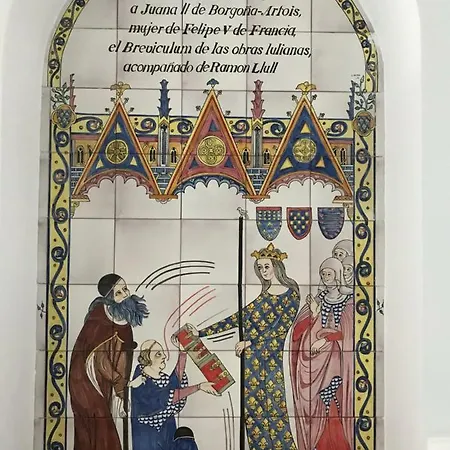 a Juana II de Borgoña-Artois,
mujer de Felipe V de Francia,
el Breviculum de las obras lulianas,
acompañado de Ramon Llull